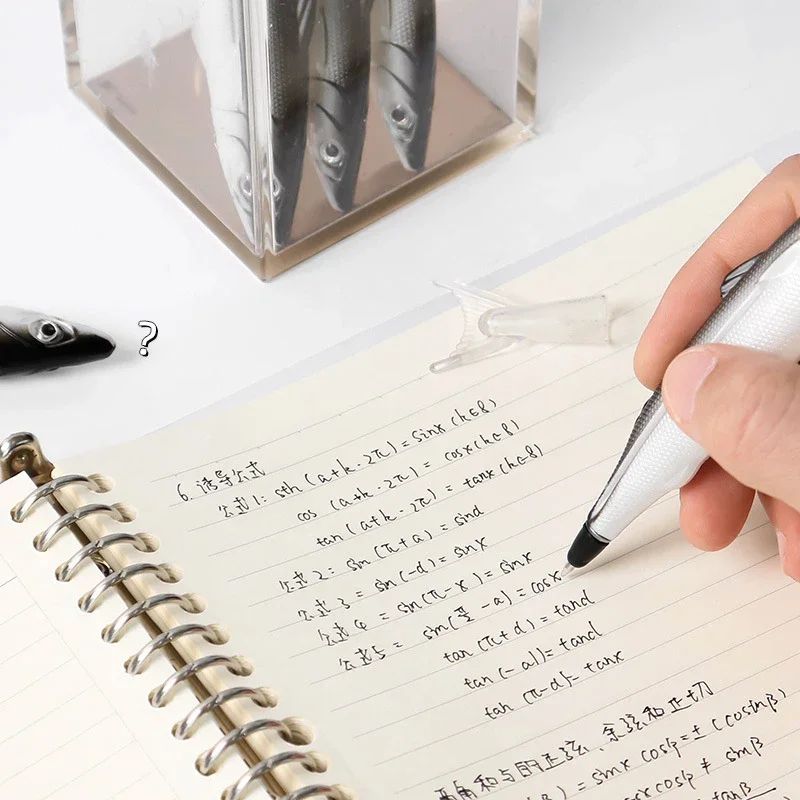 ?
6. 诱导公式
公式1: sth (a+k·2π) = sinx (k∈8)
cos (a+k·2π) = cosx (k∈8)
tan (a+k·2π) = tanx (k∈8)
公式2: sin (π+a) = sind
公式3 = sin(-d) = sinx
公式4 = sin(π-x) = sinx
公式5 = sin(π/2-a) = cosx
tan (π+d) = tand
tan (-a)) = tand
tan (π-d)= tanx
两角和与的正弦、余弦和正切
β) = sinx cosβ=± (cosinβ)
cosx cosβ ≠ sinβ
tanβ